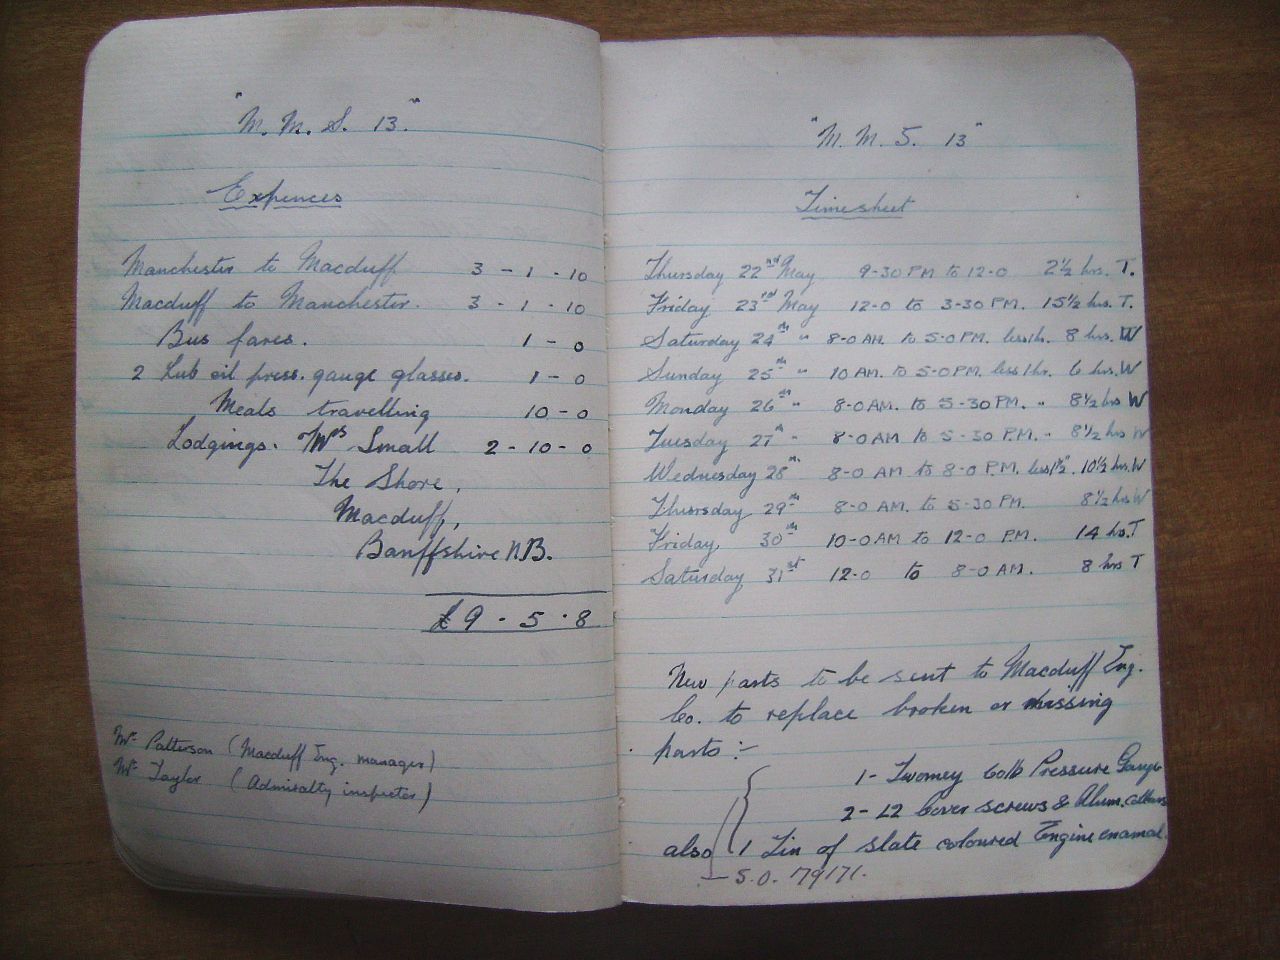 "M. M. S. 13."
Expences
Manchester to Macduff 3 - 1 - 10
Macduff to Manchester. 3 - 1 - 10
Bus fares. 1 - 0
2 Lub oil press. gauge glasses. 1 - 0
Meals travelling 10 - 0
Lodgings. Mrs Small 2 - 10 - 0
The Shore,
Macduff,
Banffshire N.B.
£9 - 5 - 8
Mr Patterson (Macduff Eng. manager)
Mr Taylor (Admiralty inspector)
"M. M. S. 13"
Timesheet
Thursday 22nd May 9-30 PM to 12-0 2½ hrs. T.
Friday 23rd May 12-0 to 3-30 PM. 15½ hrs. T.
Saturday 24th " 8-0 AM. to 5-0 PM. less 1hr. 8 hrs. W
Sunday 25th " 10 AM. to 5-0 PM. less 1hr. 6 hrs. W
Monday 26th " 8-0 AM. to 5-30 PM. " 8½ hrs W
Tuesday 27th " 8-0 AM to 5-30 P.M. " 8½ hrs W
Wednesday 28th 8-0 AM to 8-0 P.M. less 1½" 10½ hrs. W
Thursday 29th 8-0 AM. to 5-30 PM. 8½ hrs W
Friday, 30th 10-0 AM to 12-0 P.M. 14 hrs. T
Saturday 31st 12-0 to 8-0 AM. 8 hrs T
New parts to be sent to Macduff Eng.
Co. to replace broken or missing
parts :-
1 - Twomey 60lb Pressure Gauge
2 - L2 Cover screws & Alum.
also 1 Tin of slate coloured Engine enamal.
S.O. 79171.